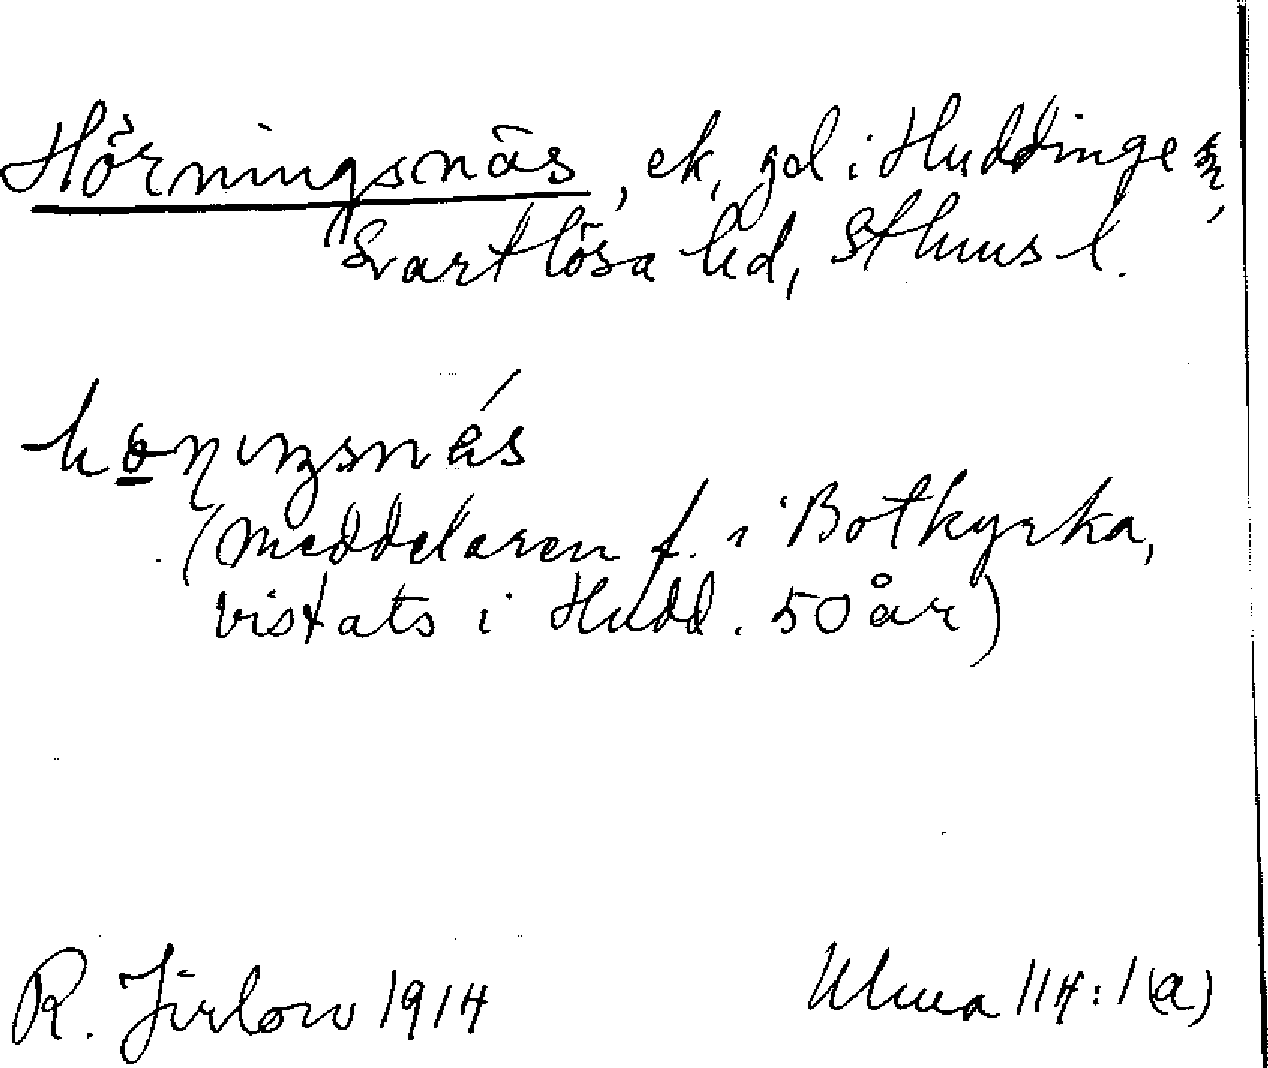 Hörningsnäs, ek. gd i Huddinge sn,
Svartlösa hd, Sthms l.
(meddelaren f. i Botkyrka,
vistats i Hudd. 50 år)
R. Jirlow 1914
Ulma 114:1(a)